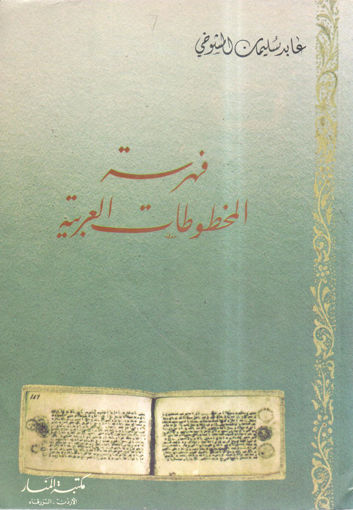 عابد سليمان المشوخي
فهرسة
المخطوطات العربية
مكتبة المنار
الأردن - الزرقاء